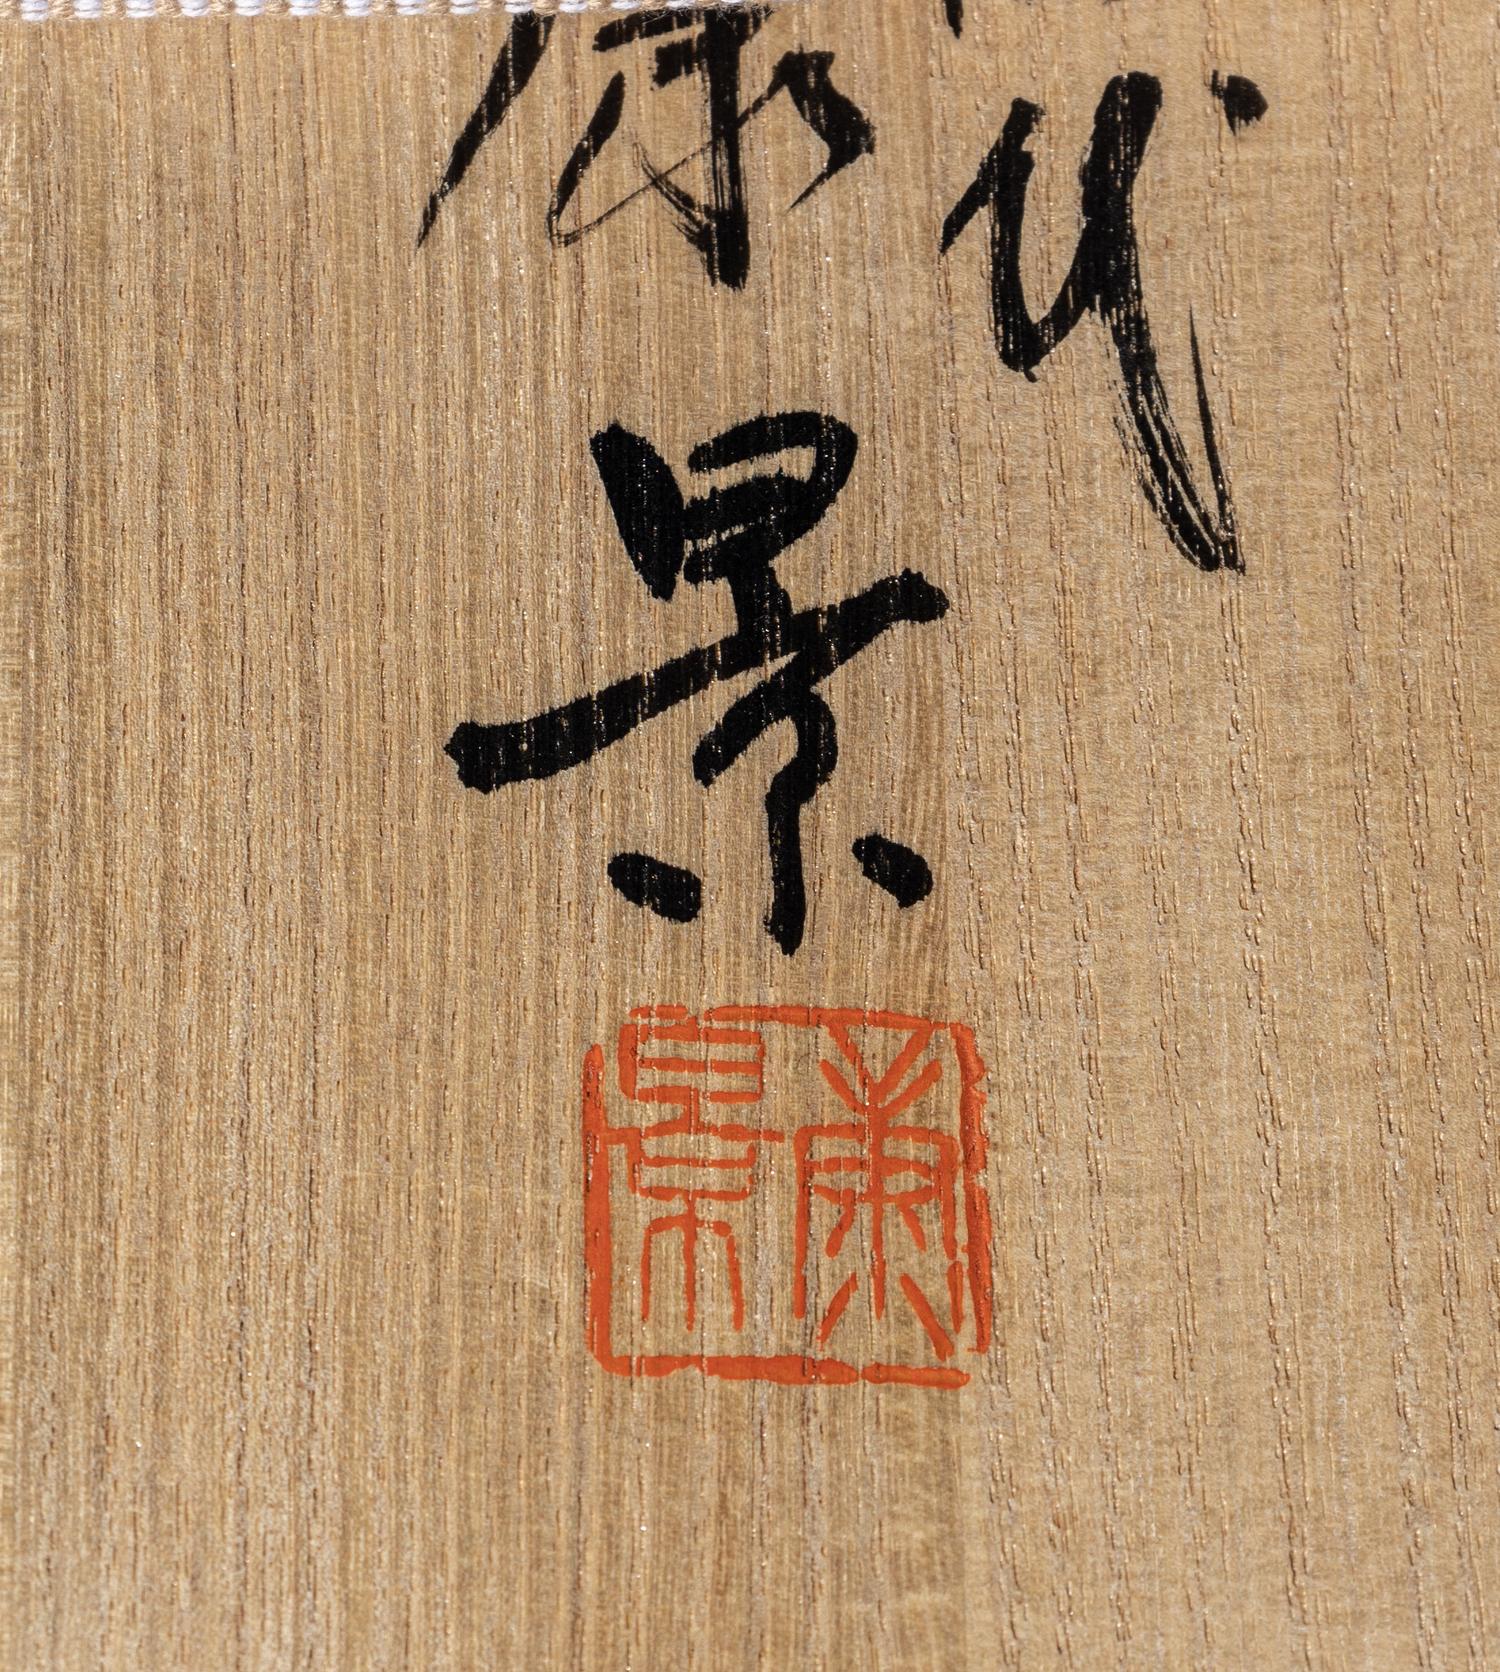 代
康景
康景